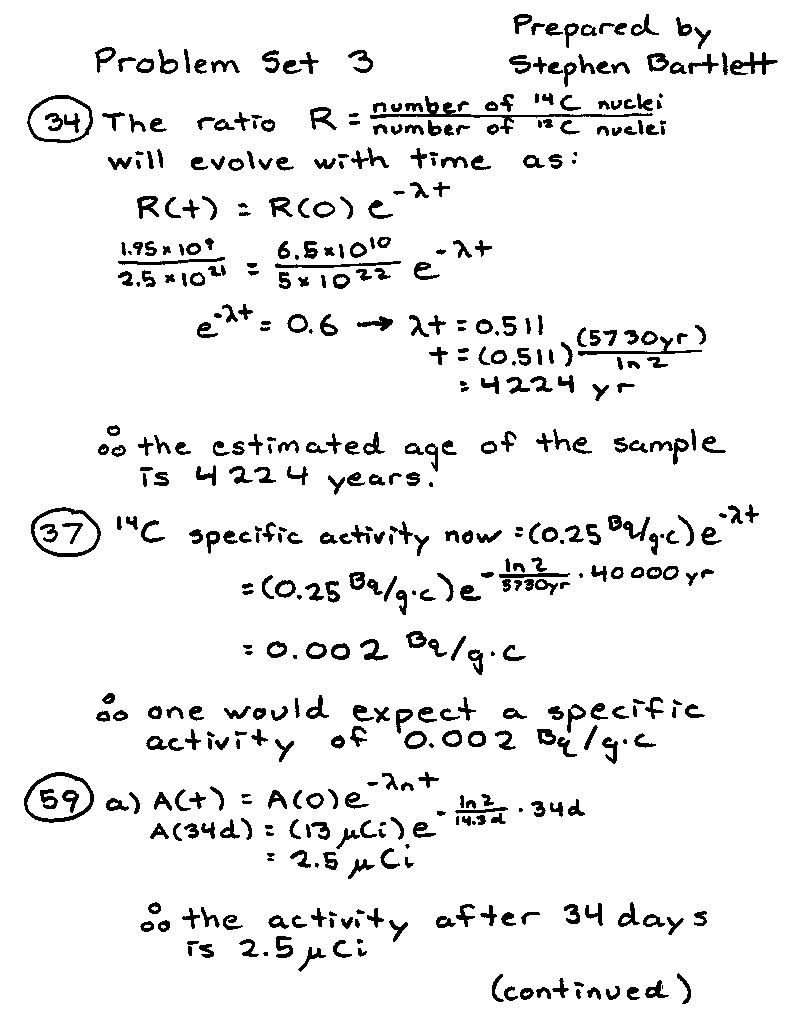 Prepared by
Problem Set 3 Stephen Bartlett
(34) The ratio R = number of ¹⁴C nuclei / number of ¹²C nuclei
will evolve with time as:
R(t) = R(0) e^(-λt)
1.95 × 10⁹ / 2.5 × 10²¹ = 6.5 × 10¹⁰ / 5 × 10²² e^(-λt)
e^(-λt) = 0.6 → λt = 0.511
t = (0.511) (5730yr) / ln 2
= 4224 yr
∴ the estimated age of the sample
is 4224 years.
(37) ¹⁴C specific activity now = (0.25 Bq/g·c) e^(-λt)
= (0.25 Bq/g·c) e^(- ln 2 / 5730yr · 40000 yr)
= 0.002 Bq/g·c
∴ one would expect a specific
activity of 0.002 Bq/g·c
(59) a) A(t) = A(0) e^(-λₙt)
A(34d) = (13 μCi) e^(- ln 2 / 14.3d · 34d)
= 2.5 μCi
∴ the activity after 34 days
is 2.5 μCi
(continued)